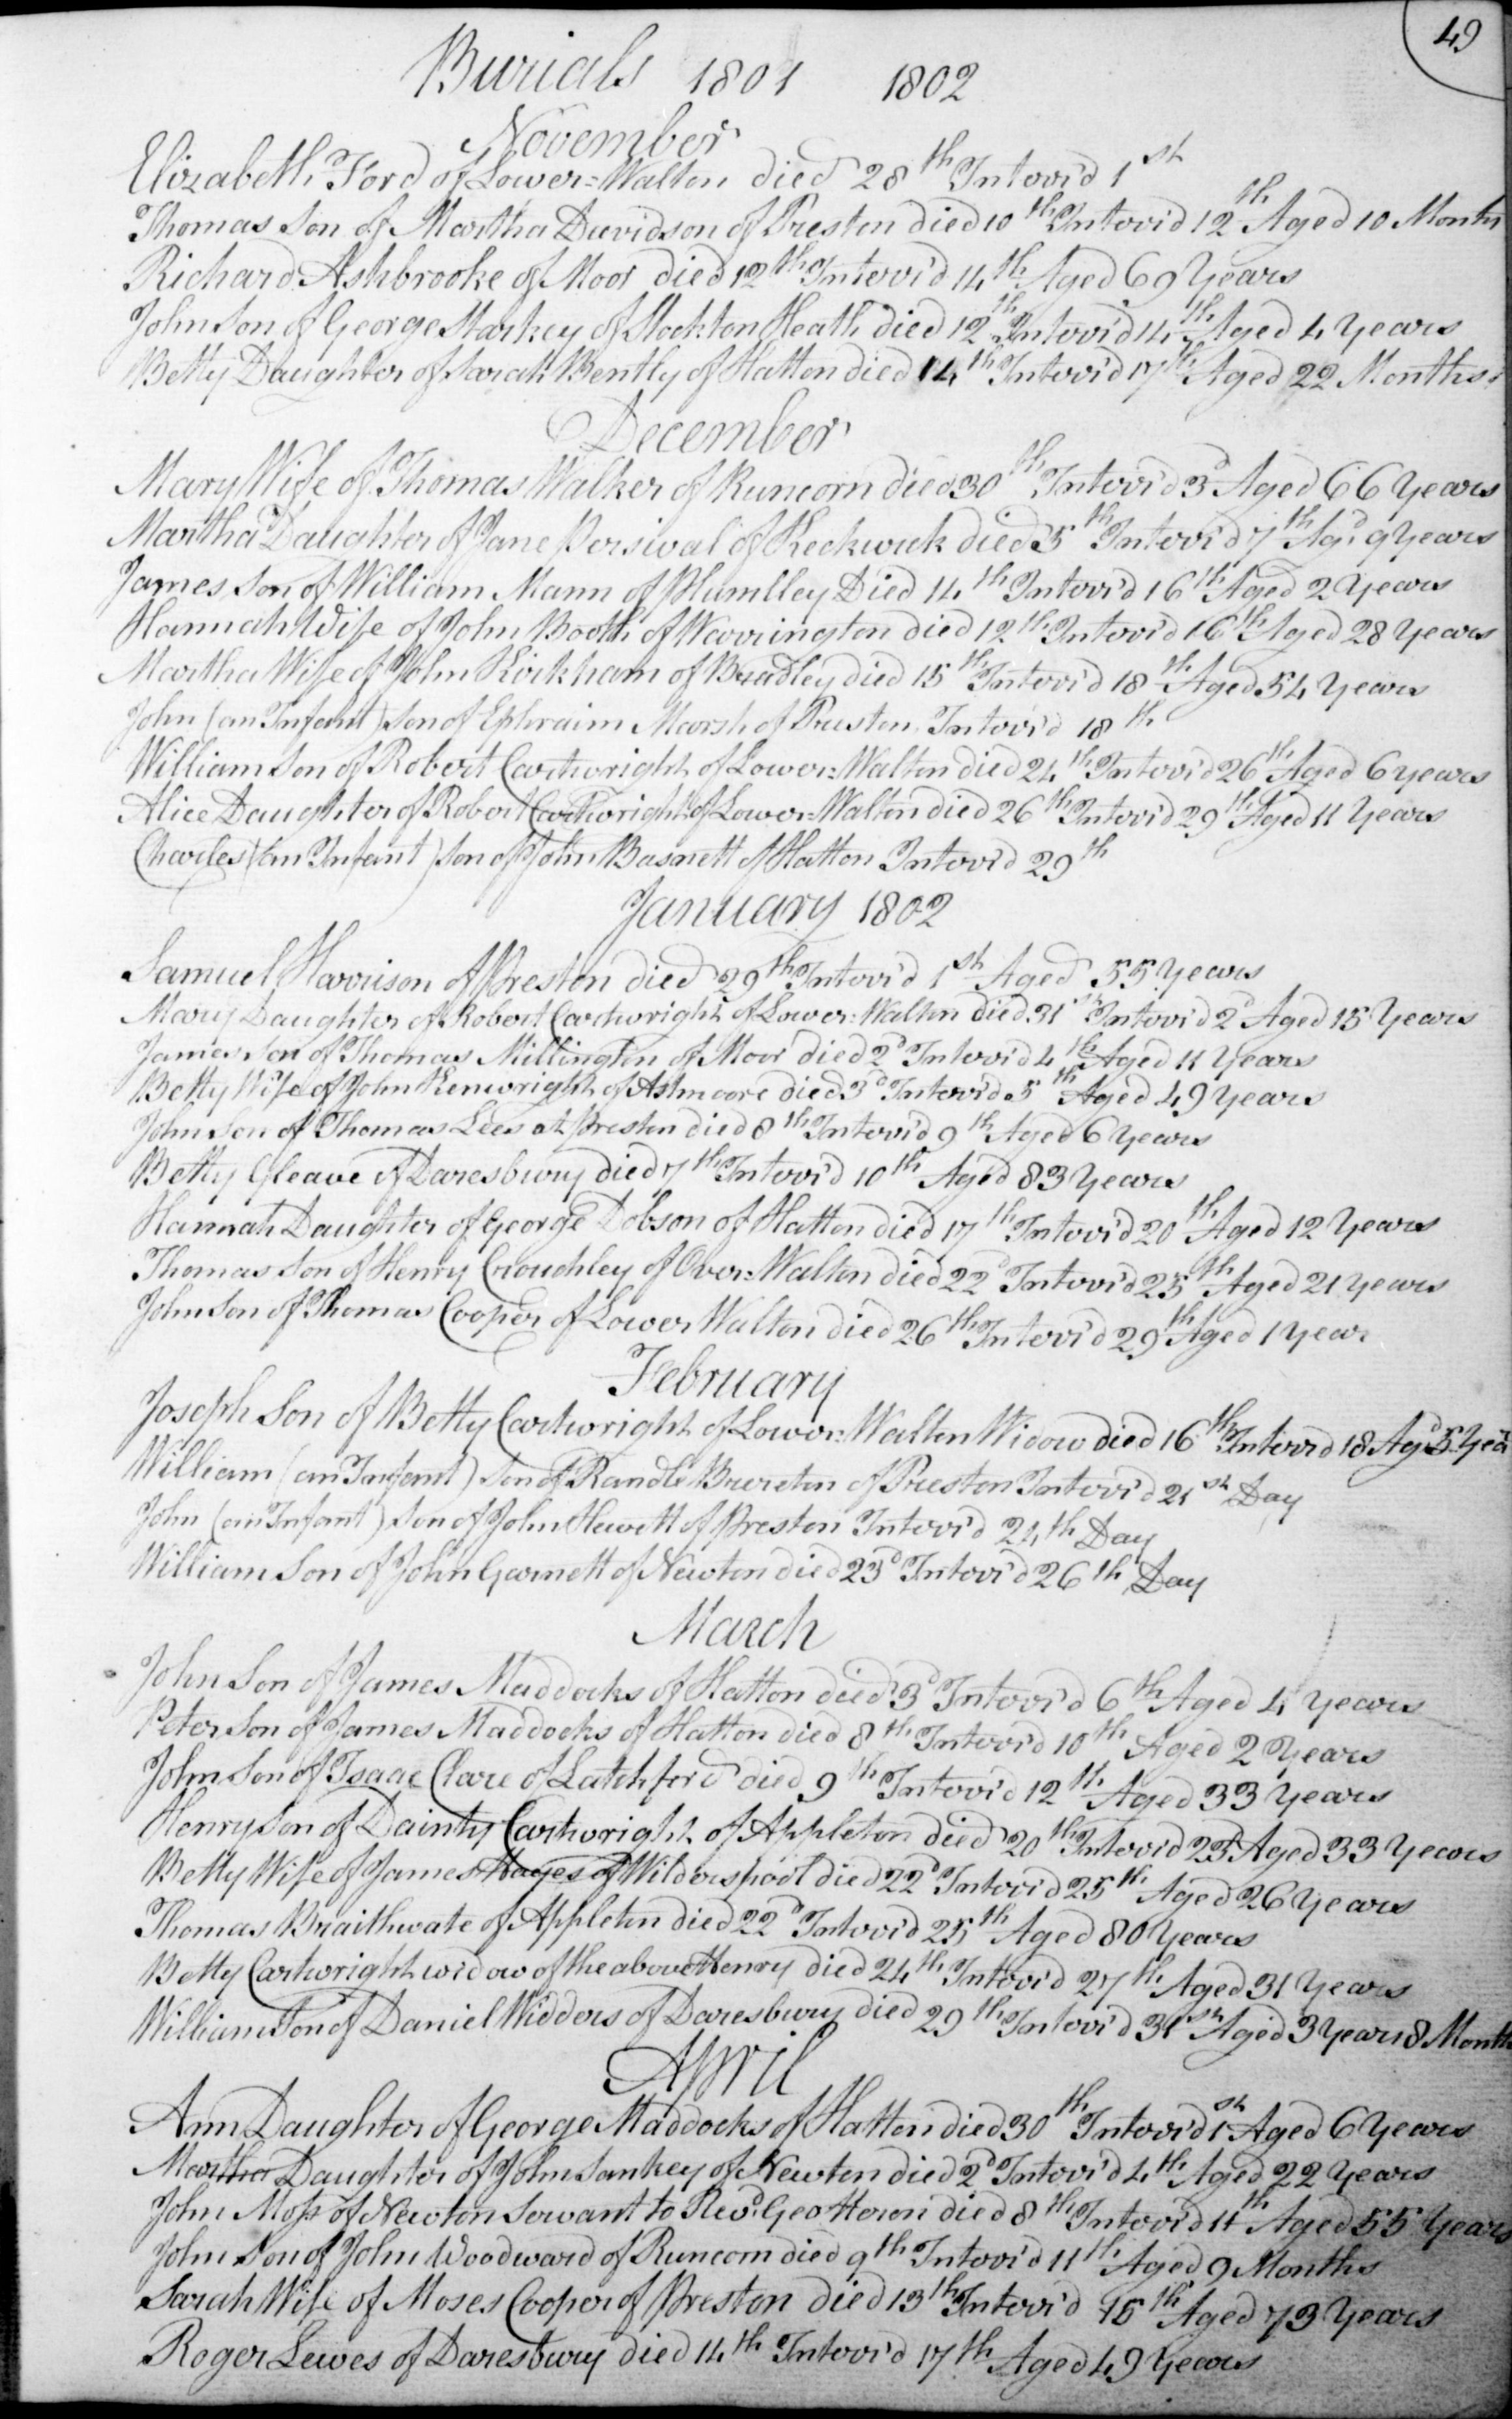 49
Burials 1801 1802
November
Elizabeth Ford of Lower=Walton died 28th Interr'd 1st
Thomas Son of Martha Davidson of Preston died 10th Interr'd 12th Aged 10 Months
Richard Ashbrooke of Moor died 12th Interr'd 14th Aged 69 Years
John Son of George Starkey of Stockton Heath died 12th Interr'd 14th Aged 4 Years
Betty Daughter of Sarah Bently of Hatton died 14th Interr'd 17th Aged 22 Months
December
Mary Wife of Thomas Walker of Runcorn died 30th Interr'd 3d Aged 66 Years
Martha Daughter of Jane Persival of Keckwick died 5th Interr'd 7th Ag'd 9 Years
James Son of William Mann of Plumlley Died 14th Interr'd 16th Aged 2 Years
Hannah Wife of John Booth of Warrington died 12th Interr'd 16th Aged 28 Years
Martha Wife of John Kirkham of Bradley died 15th Interr'd 18th Aged 54 Years
John (an Infant) Son of Ephraim Marsh of Preston Interr'd 18th
William Son of Robert Cartwright of Lower=Walton died 24th Interr'd 26th Aged 6 years
Alice Daughter of Robert Cartwright of Lower=Walton died 26th Interr'd 29th Aged 11 Years
Charles (an Infant) Son of John Basnett of Hatton Interr'd 29th
January 1802
Samuel Harrison of Preston died 29th Interr'd 1st Aged 55 Years
Mary Daughter of Robert Cartwright of Lower=Walton died 31st Interr'd 2d Aged 15 Years
James Son of Thomas Millington of Moor died 2d Interr'd 4th Aged 11 Years
Betty Wife of John Kenwright of Astmoore died 3d Interr'd 5th Aged 49 Years
John Son of Thomas Lees at Preston died 8th Interr'd 9th Aged 6 Years
Betty Gleave of Daresbury died 7th Interr'd 10th Aged 83 Years
Hannah Daughter of George Dobson of Hatton died 17th Interr'd 20th Aged 12 Years
Thomas Son of Henry Crouchley of Over=Walton died 22d Interr'd 25th Aged 21 years
John Son of Thomas Cooper of Lower Walton died 26th Interr'd 29th Aged 1 Year
February
Joseph Son of Betty Cartwright of Lower=Walton Widow died 16th Interr'd 18 Ag'd 5 Yea
William (an Infant) Son of Randle Brereton of Preston Interr'd 21st Day
John (an Infant) Son of John Hewett of Preston Interr'd 24th Day
William Son of John Garnett of Newton died 23d Interr'd 26th Day
March
John Son of James Maddocks of Hatton died 3d Interr'd 6th Aged 4 Years
Peter Son of James Maddocks of Hatton died 8th Interr'd 10th Aged 2 Years
John Son of Isaac Clare of Latchford died 9th Interr'd 12th Aged 33 Years
Henry Son of Dainty Cartwright of Appleton died 20th Interr'd 23d Aged 33 Years
Betty Wife of James Hayes of Wilderspool died 22d Interr'd 25th Aged 26 Years
Thomas Braithwate of Appleton died 22d Interr'd 25th Aged 80 Years
Betty Cartwright widow of the above Henry died 24th Interr'd 27th Aged 31 Years
William Son of Daniel Widders of Daresbury died 29th Interr'd 31st Aged 3 Years 8 Month
April
Ann Daughter of George Maddocks of Hatton died 30th Interr'd 1st Aged 6 Years
Martha Daughter of John Sankey of Newton died 2d Interr'd 4th Aged 22 Years
John Moss of Newton Servant to Revd. Geo Heron died 8th Interr'd 11th Aged 55 Years
John Son of John Woodward of Runcorn died 9th Interr'd 11th Aged 9 Months
Sarah Wife of Moses Cooper of Preston died 13th Interr'd 15th Aged 73 Years
Roger Lewes of Daresbury died 14th Interr'd 17th Aged 49 Years